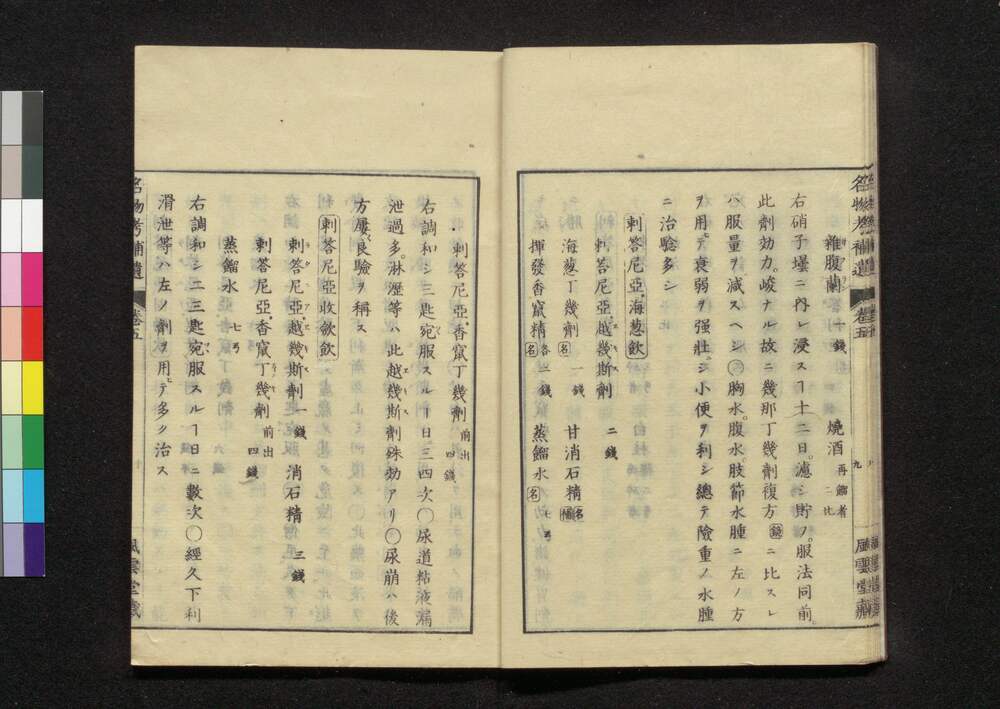 名物考補遺 卷五 九 風雲堂藏
雜腹蘭 十錢 燒酒 再餾者 二比
右硝子壜ニ內レ浸スヿ十二日。濾シ貯フ。服法同前
此劑効力。峻ナル故ニ幾那丁幾劑複方ニ比スレ
ハ服量ヲ減スヘシ〇胸水。腹水。肢節水腫ニ左ノ方
ヲ用テ衰弱ヲ强壯シ小便ヲ利シ總テ險重ノ水腫
ニ治驗多シ
剌答尼亞海葱飮
剌答尼亞越幾斯劑 二錢
海葱丁幾劑 名 一錢 甘消石精 名
揮發香竄精 名 各二錢 蒸餾水 名 七弓
剌答尼亞香竄丁幾劑 前出 四錢
右調和シ三匙宛服スルヿ日三四次〇尿道粘液漏
泄過多。淋瀝等ハ此越幾斯劑殊効アリ〇尿崩ハ後
方屢良驗ヲ稱ス
剌答尼亞收斂飮
剌答尼亞越幾斯劑 一錢 消石精 三錢
剌答尼亞香竄丁幾劑 前出 四錢
蒸餾水 七弓
右調和シ二三匙宛服スルヿ日ニ數次〇經久下利
滑泄等ハ左ノ劑ヲ用テ多ク治ス
名物考補遺 卷五 十 風雲堂藏